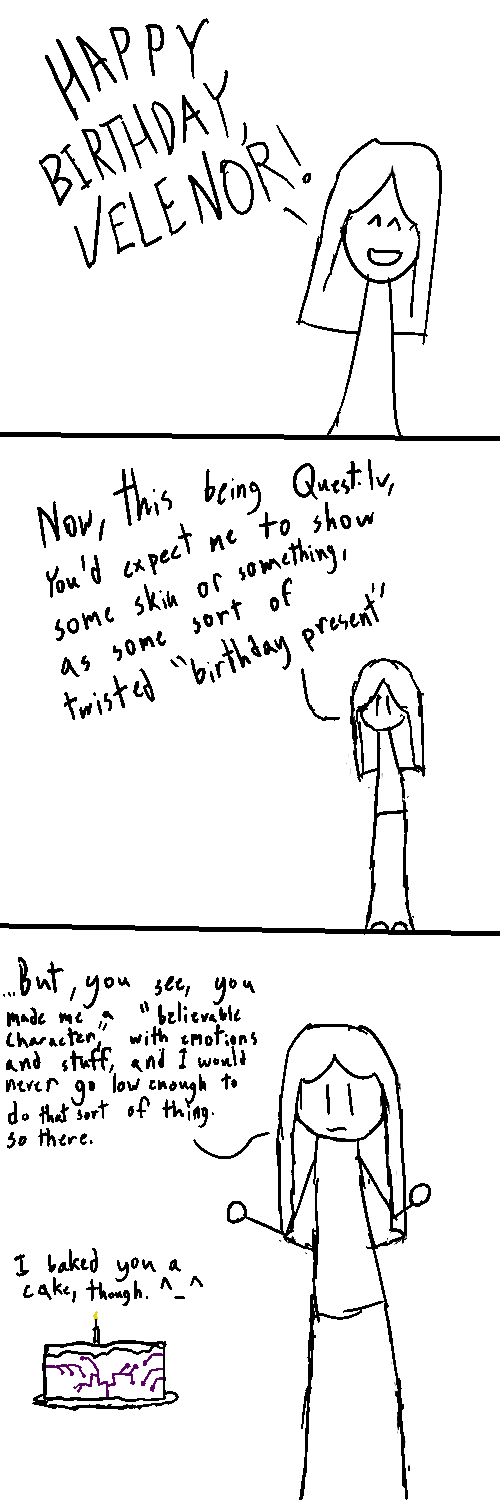 HAPPY
BIRTHDAY,
VELENOR!
Now, this being Quest.lv,
You'd expect me to show
some skin or something,
as some sort of
twisted "birthday present"
...But, you see, you
made me a "believable
character," with emotions
and stuff, and I would
never go low enough to
do that sort of thing.
so there.
I baked you a
cake, though. ^_^